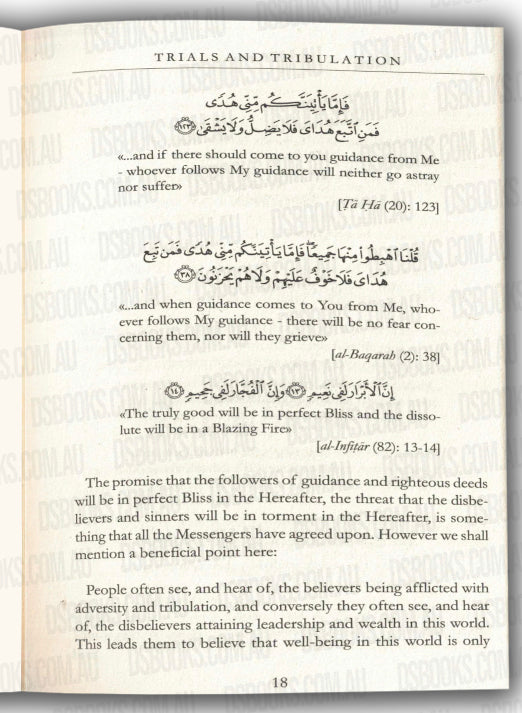 TRIALS AND TRIBULATION
فَإِمَّا يَأْتِيَنَّكُم مِّنِّي هُدًى
فَمَنِ ٱتَّبَعَ هُدَايَ فَلَا يَضِلُّ وَلَا يَشْقَىٰ ﴿١٢٣﴾
«...and if there should come to you guidance from Me
- whoever follows My guidance will neither go astray
nor suffer»
[Tā Hā (20): 123]
قُلْنَا ٱهْبِطُوا۟ مِنْهَا جَمِيعًا ۖ فَإِمَّا يَأْتِيَنَّكُم مِّنِّي هُدًى فَمَن تَبِعَ
هُدَايَ فَلَا خَوْفٌ عَلَيْهِمْ وَلَا هُمْ يَحْزَنُونَ ﴿٣٨﴾
«...and when guidance comes to You from Me, who-
ever follows My guidance - there will be no fear con-
cerning them, nor will they grieve»
[al-Baqarah (2): 38]
إِنَّ ٱلْأَبْرَارَ لَفِي نَعِيمٍ ﴿١٣﴾ وَإِنَّ ٱلْفُجَّارَ لَفِي جَحِيمٍ ﴿١٤﴾
«The truly good will be in perfect Bliss and the disso-
lute will be in a Blazing Fire»
[al-Infiṭār (82): 13-14]
The promise that the followers of guidance and righteous deeds
will be in perfect Bliss in the Hereafter, the threat that the disbe-
lievers and sinners will be in torment in the Hereafter, is some-
thing that all the Messengers have agreed upon. However we shall
mention a beneficial point here:
People often see, and hear of, the believers being afflicted with
adversity and tribulation, and conversely they often see, and hear
of, the disbelievers attaining leadership and wealth in this world.
This leads them to believe that well-being in this world is only
18
DSBOOKS.COM.AU